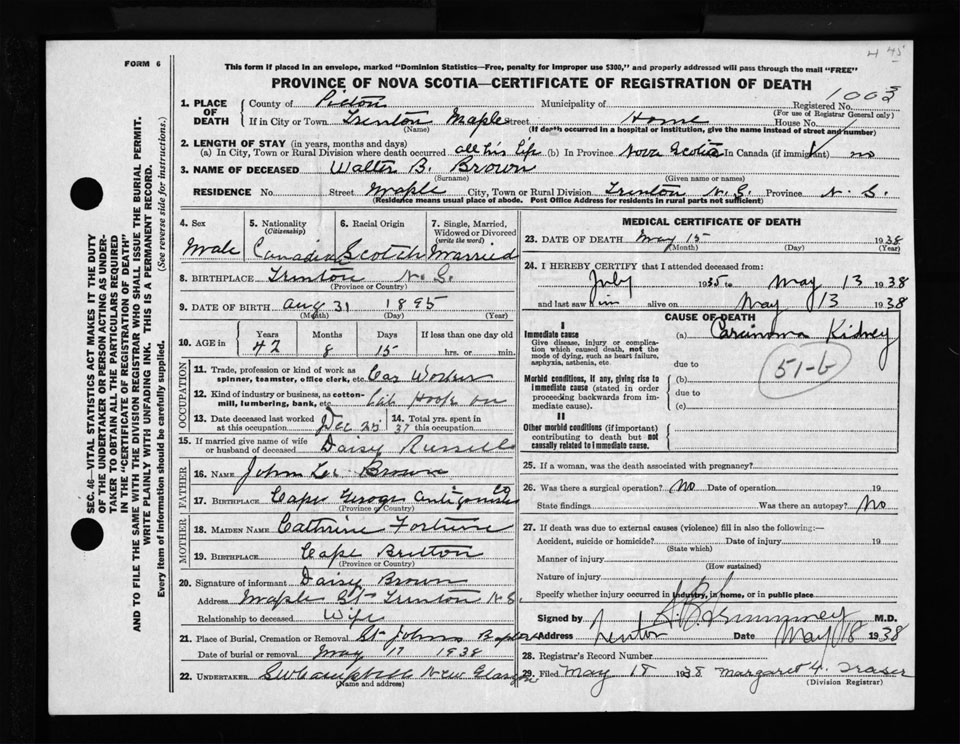 4 45
FORM 6
This form if placed in an envelope, marked "Dominion Statistics—Free, penalty for improper use $300," and properly addressed will pass through the mail "FREE"
PROVINCE OF NOVA SCOTIA—CERTIFICATE OF REGISTRATION OF DEATH
1003
1. PLACE OF DEATH County of Pictou Municipality of Registered No.
(For use of Registrar General only)
If in City or Town Trenton Maple Street Home House No.
(Name) (If death occurred in a hospital or institution, give the name instead of street and number)
2. LENGTH OF STAY (in years, months and days)
(a) In City, Town or Rural Division where death occurred all his life (b) In Province Nova Scotia In Canada (if immigrant) no
3. NAME OF DECEASED Walter B. Brown
(Surname) (Given name or names)
RESIDENCE No. Street Maple City, Town or Rural Division Trenton N.S. Province N.S.
(Residence means usual place of abode. Post Office Address for residents in rural parts not sufficient)
4. Sex 5. Nationality (Citizenship) 6. Racial Origin 7. Single, Married, Widowed or Divorced (write the word)
Male Canadian Scotch Married
8. BIRTHPLACE Trenton N.S.
(Province or Country)
9. DATE OF BIRTH Aug 31 1895
(Month) (Day) (Year)
10. AGE in Years Months Days If less than one day old
42 8 15 hrs. or min.
OCCUPATION
11. Trade, profession or kind of work as spinner, teamster, office clerk, etc. Car Worker
12. Kind of industry or business, as cotton-mill, lumbering, bank, etc. Hook on
13. Date deceased last worked at this occupation Dec 14. Total yrs. spent in this occupation 37
15. If married give name of wife or husband of deceased Daisy Russell
FATHER
16. NAME John Brown
17. BIRTHPLACE Cape George Antigonish Co
(Province or Country)
MOTHER
18. MAIDEN NAME Cathrine Fortune
19. BIRTHPLACE Cape Britton
(Province or Country)
20. Signature of informant Daisy Brown
Address Maple St Trenton N.S.
Relationship to deceased Wife
21. Place of Burial, Cremation or Removal St Johns
Date of burial or removal May 17 1938
22. UNDERTAKER Campbell New Glasgow
(Name and address)
MEDICAL CERTIFICATE OF DEATH
23. DATE OF DEATH May 15 1938
(Month) (Day) (Year)
24. I HEREBY CERTIFY that I attended deceased from:
July 1935 to May 13 1938
and last saw him alive on May 13 1938
CAUSE OF DEATH
I
Immediate cause (a) Carcinoma Kidney
Give disease, injury or complication which caused death, not the mode of dying, such as heart failure, asphyxia, asthenia, etc. due to
51-b
Morbid conditions, if any, giving rise to immediate cause (stated in order proceeding backwards from immediate cause). (b)
due to
(c)
II
Other morbid conditions (if important) contributing to death but not causally related to immediate cause.
25. If a woman, was the death associated with pregnancy?
26. Was there a surgical operation? No Date of operation 19
State findings Was there an autopsy? No
27. If death was due to external causes (violence) fill in also the following:—
Accident, suicide or homicide? Date of injury 19
(State which)
Manner of injury
(How sustained)
Nature of injury
Specify whether injury occurred in industry, in home, or in public place
Signed by M.D.
Address Trenton Date May 18 1938
28. Registrar's Record Number
29. Filed May 18 1938 Margaret Fraser
(Division Registrar)
SEC. 46—VITAL STATISTICS ACT MAKES IT THE DUTY
OF THE UNDERTAKER OR PERSON ACTING AS UNDER-
TAKER TO OBTAIN ALL THE PARTICULARS REQUIRED
IN THE "CERTIFICATE OF REGISTRATION OF DEATH"
AND TO FILE THE SAME WITH THE DIVISION REGISTRAR WHO SHALL ISSUE THE BURIAL PERMIT.
WRITE PLAINLY WITH UNFADING INK. THIS IS A PERMANENT RECORD.
Every item of information should be carefully supplied. (See reverse side for instructions.)